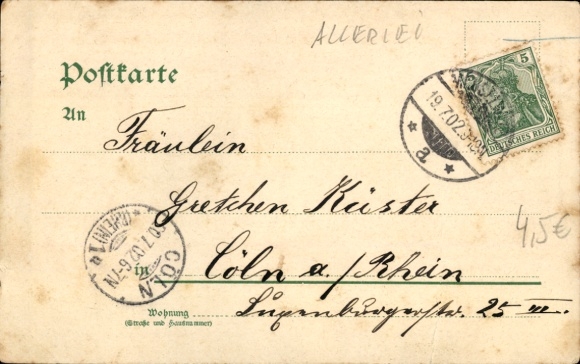 ALLERLEI
Postkarte
5
DEUTSCHES REICH
19.7.02
a.
An
Fräulein
Gretchen Küster
4,5€
in Cöln a./Rhein
CÖLN
(RHEIN) 1
.7.02. 6-7N
Wohnung
(Straße und Hausnummer)
Luxenburgerstr. 25 III.